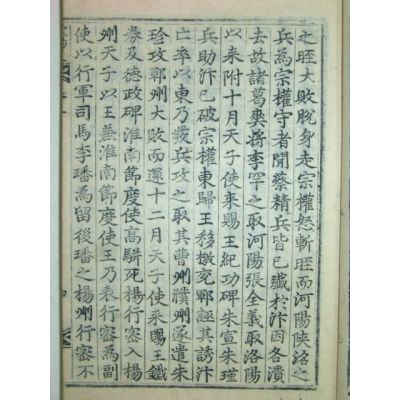 之晊大敗脫身走宗權怒斬晊而河陽陝洛之
兵為宗權守者聞蔡精兵皆已殲於汴因各潰
去故諸葛爽將李罕之取河陽張全義取洛陽
以来附十月天子使来賜王紀功碑朱宣朱瑾
兵助汴已破宗權東歸王移檄兖鄆誣其誘汴
亡卒以東乃發兵攻之取其曹州濮州遂遣朱
珍攻鄆州大敗而還十二月天子使来賜王鐵
券及德政碑淮南節度使高駢死楊行密入楊
州天子以王兼淮南節度使王乃表行密為副
使以行軍司馬李璠為留後璠之楊州行密不